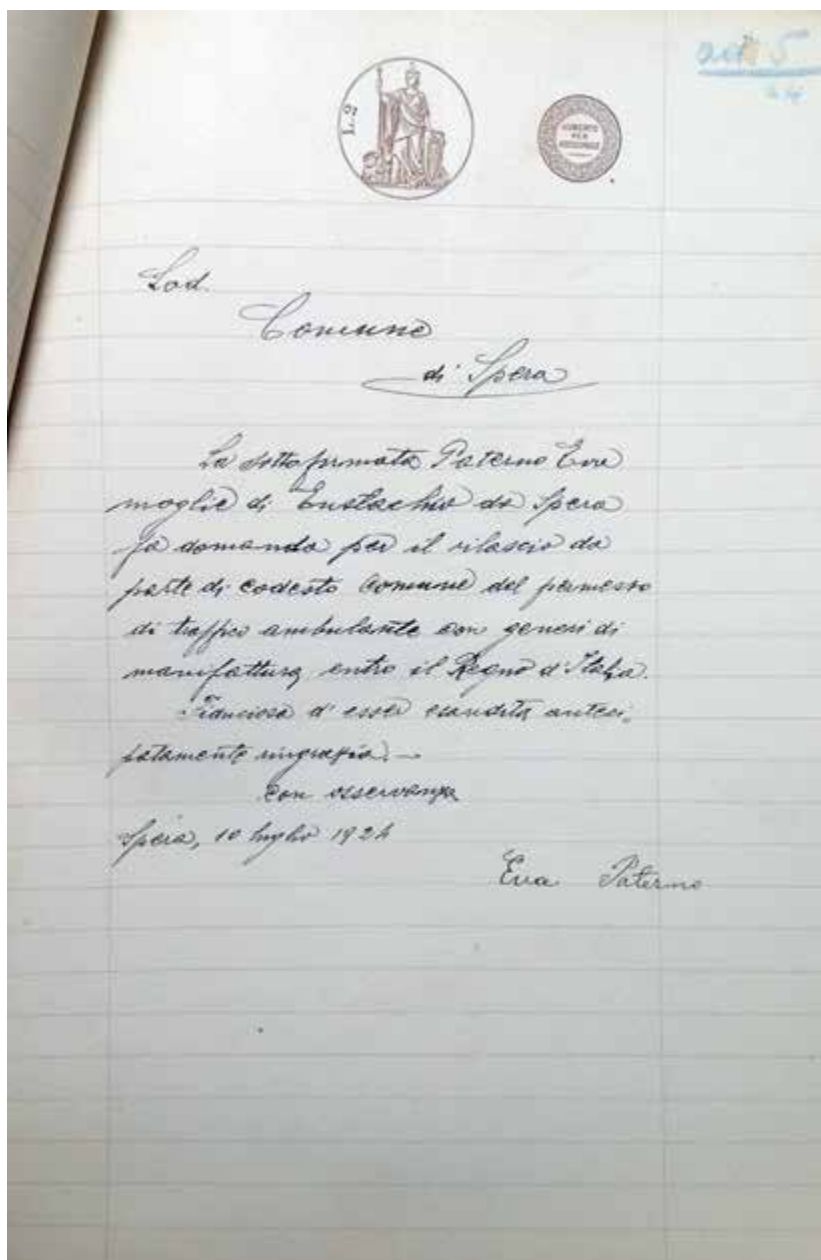 ad 5
24
L. 2
AUMENTO
PER
ADDIZIONALE
Lod.
Comune
di Spera
La sottofirmata Paterno Eva
moglie di Eustachio da Spera
fa domanda per il rilascio da
parte di codesto Comune del permesso
di traffico ambulante con generi di
manifattura, entro il Regno d'Italia.
Fiduciosa d'esser esaudita anteci„
patamente ringrazia. —
Con osservanza
Spera, 10 luglio 1924
Eva Paterno